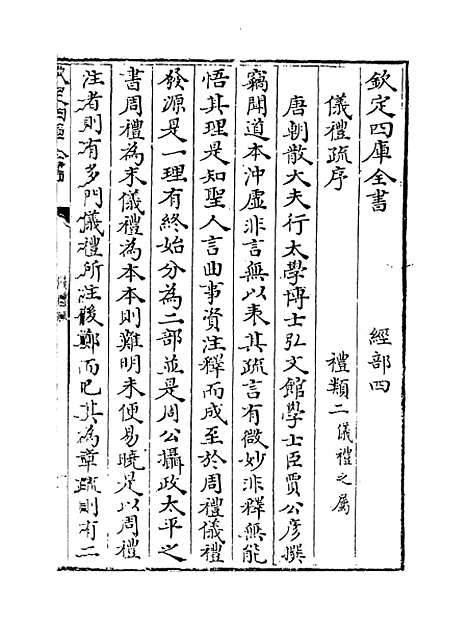 欽定四庫全書 經部四
儀禮疏序 禮類二儀禮之屬
唐朝散大夫行太學博士弘文館學士臣賈公彥撰
竊聞道本沖虛非言無以表其疏言有微妙非釋無能
悟其理是知聖人言曲事資注釋而成至於周禮儀禮
發源是一理有終始分為二部並是周公攝政太平之
書周禮為末儀禮為本本則難明末便易曉是以周禮
注者則有多門儀禮所注後鄭而已其為章疏則有二
欽定四庫全書